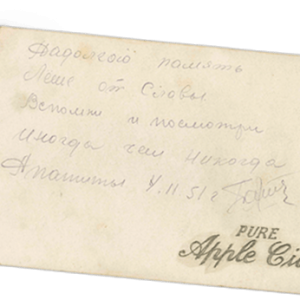 Надолгою память
Леше от Славы
Вспомни и посмотри
иногда чем никогда
Апатиты 4.11.51 г
PURE
Apple Ci